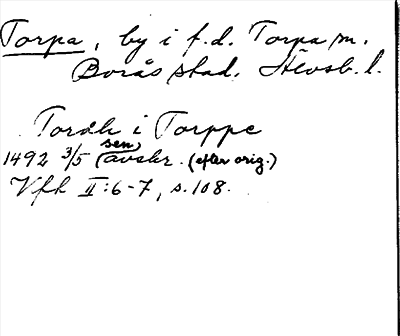 Torpa, by i f.d. Torpa sn.
Borås stad. Älvsb. l.
Tordh i Torppe
1492 3/5 (sen) avskr. (efter orig.)
Vfh II:6-7, s.108.